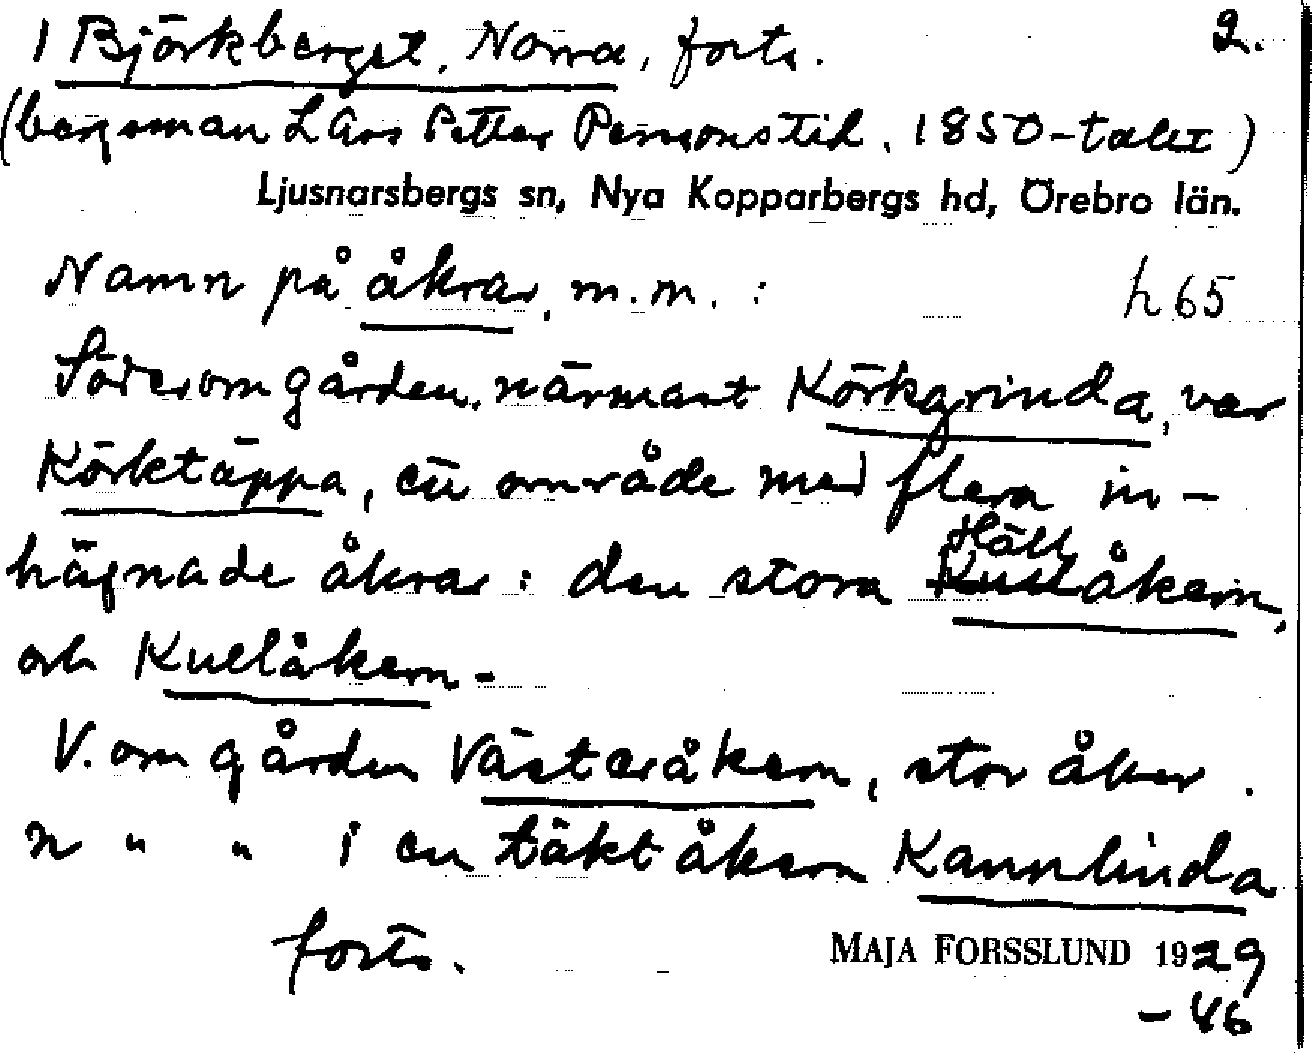 I Björkberget, Norra, forts. 2.
(bergsman Lars Petter Perssons tid, 1850-talet)
Ljusnarsbergs sn, Nya Kopparbergs hd, Örebro län.
Namn på åkrar, m.m. : h 65
Söder om gården, närmast Körkgrinda, var
Körktäppa, ett område med flera in-
hägnade åkrar: den stora Hällåkern,
och Kullåkern.
V. om gården Västeråkern, stor åker.
N " " i en täkt åkern Kannlinda
forts. MAJA FORSSLUND 1929
-46